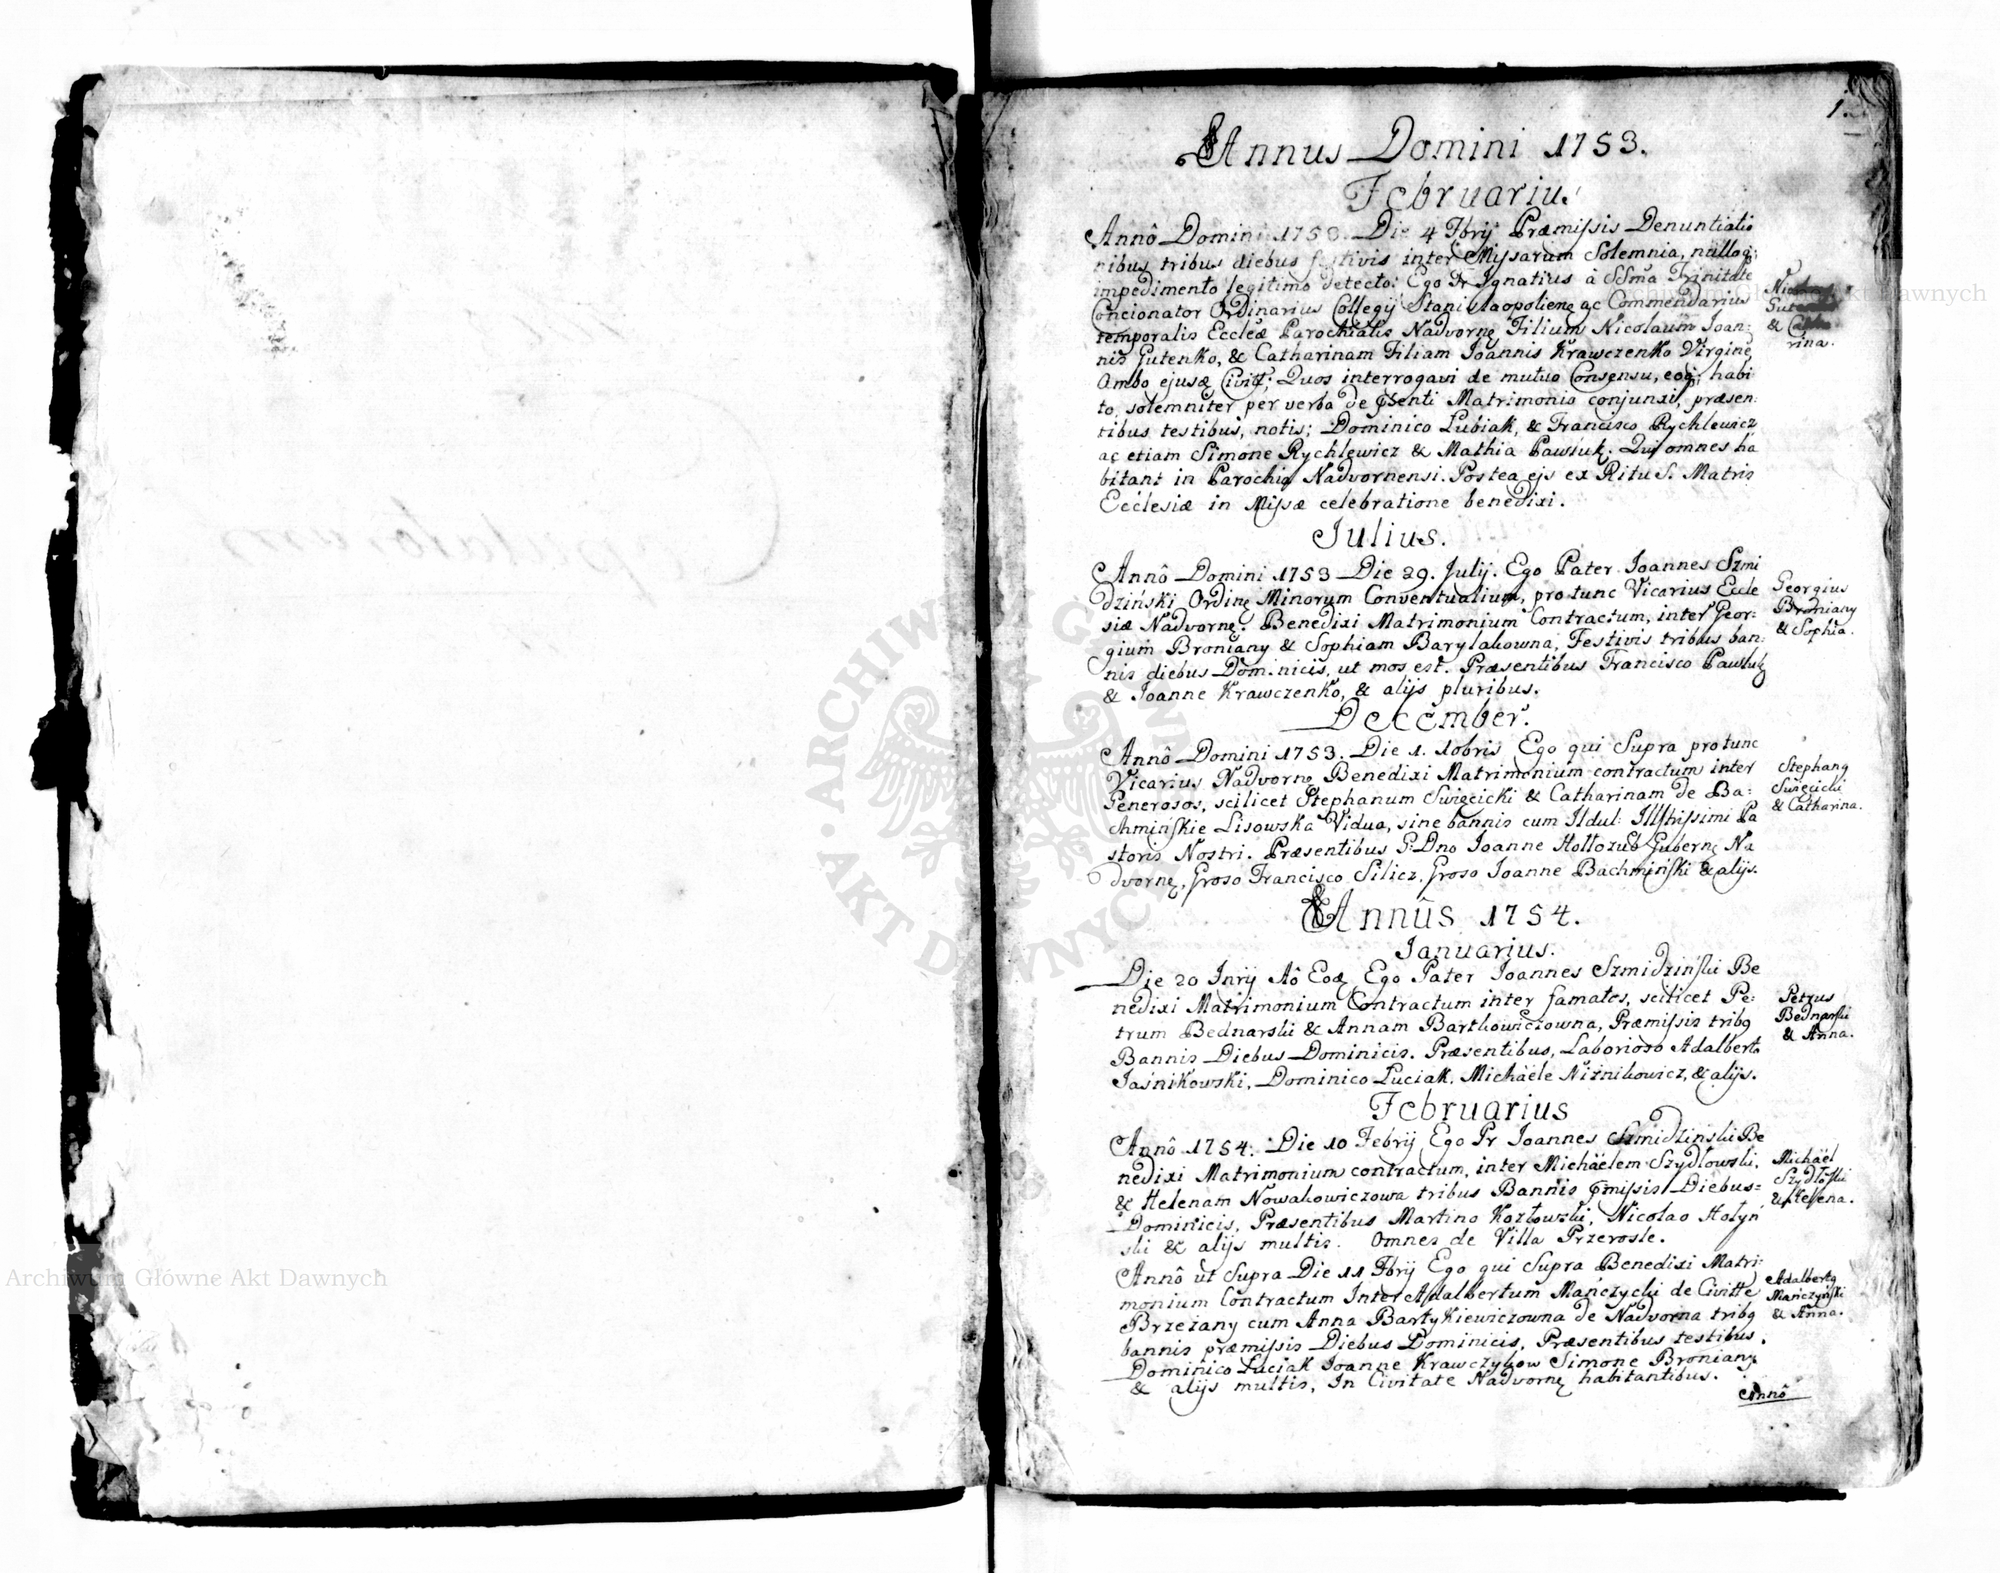 1.
Annus Domini 1753.
Februarius
Annô Domini 1753. Die 4 Fbrij Præmissis Denuntiatio
nibus tribus diebus festivis inter Missarum Solemnia, nulloq;
impedimento legitimo detecto: Ego Fr Ignatius à SSma Trinitate
Concionator Ordinarius Collegij Stanislaopolienę ac Commendarius
temporalis Eccleæ Parochialis Nadvornę Filium Nicolaum Joan:
nis Gutenko, & Catharinam Filiam Joannis Krawczenko Virginę
Ambo ejusę Civitt; Quos interrogavi de mutuo Consensu, eoq; habi
to, solemniter per verba de pſenti Matrimonio conjunxi, præsen:
tibus testibus, notis; Dominico Lubiak, & Francisco Rychlewicz
ac etiam Simone Rychlewicz & Mathia Pawluk. Qui omnes ha
bitant in Parochia Nadvornensi. Postea ejs ex Ritu S. Matris
Ecclesiæ in Missæ celebratione benedixi.
Nicolaus
& Catha
rina.
Julius.
Annô Domini 1753 Die 29. Julij. Ego Pater Joannes Szmi
dziński Ordinę Minorum Conventualium, pro tunc Vicarius Eccle
siæ Nadvornę. Benedixi Matrimonium Contractum, inter Geor:
gium Broniany & Sophiam Barylakowna, Festivis tribus ban:
nis diebus Dominicis, ut mos est. Præsentibus Francisco Pawluk
& Joanne Krawczenko, & alijs pluribus.
Georgius
Broniany
& Sophia.
December.
Annô Domini 1753. Die 1. 10bris Ego qui Supra pro tunc
Vicarius Nadvornę Benedixi Matrimonium contractum inter
Generosos, scilicet Stephanum Swięcicki & Catharinam de Ba:
chmińskie Lisowska Vidua, sine bannis cum Ildul: Illſtrissimi Pa
storis Nostri. Præsentibus G: Dno Joanne Hołłozub Gubernę Na
dvornę, Groso Francisco Silicz. Groso Joanne Bachmiński & alijs.
Stephang
Swięcicki
& Catharina.
Annûs 1754.
Januarius.
Die 20 Jnrij Aô Eodę Ego Pater Joannes Szmidziński Be
nedixi Matrimonium Contractum inter famatos, scilicet Pe:
trum Bednarski & Annam Barthowiczowna, Præmissis tribg
Bannis Diebus Dominicis. Præsentibus, Laborioso Adalberto
Jaśnikowski, Dominico Luciak. Michäele Niżnikowicz, & alijs.
Petrus
Bednarski
& Anna.
Februarius
Annô 1754. Die 10 Febrij Ego Pr Joannes Szmidziński Be
nedixi Matrimonium contractum, inter Michäelem Szydłowski,
& Helenam Nowakowiczowa tribus Bannis pmissis Diebus=
Dominicis, Præsentibus Martino Kozłowski, Nicolao Hołyń
ski & alijs multis. Omnes de Villa Przerosle.
Michäel
Szydłoſki
& Helena.
Annô ut Supra Die 11 Fbrij Ego qui Supra Benedixi Matri:
monium Contractum Inter Adalbertum Mańczycki de Civitte
Brzeżany cum Anna Bartykiewiczowna de Nadvorna tribg
bannis præmissis Diebus Dominicis, Præsentibus testibus.
Dominico Luciak Joanne Krawczykow Simone Broniany.
& alijs multis, In Civitate Nadvornę habitantibus.
Adalbertg
Mańczyński
& Anna.
Annô
ARCHIWUM GŁÓWNE AKT DAWNYCH
Archiwum Główne Akt Dawnych
Archiwum Główne Akt Dawnych